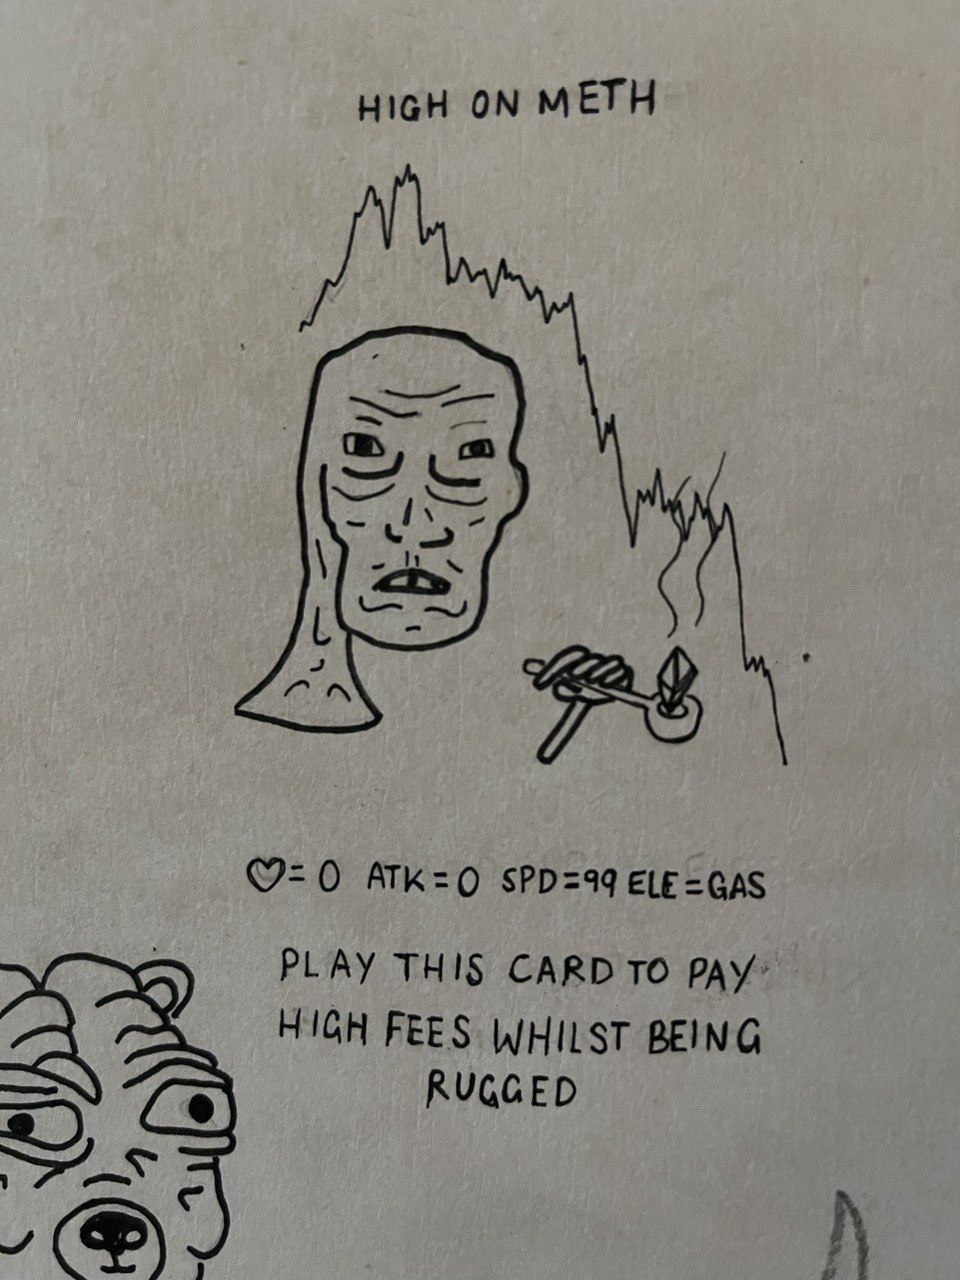 HIGH ON METH
♡=0 ATK=0 SPD=99 ELE=GAS
PLAY THIS CARD TO PAY
HIGH FEES WHILST BEING
RUGGED